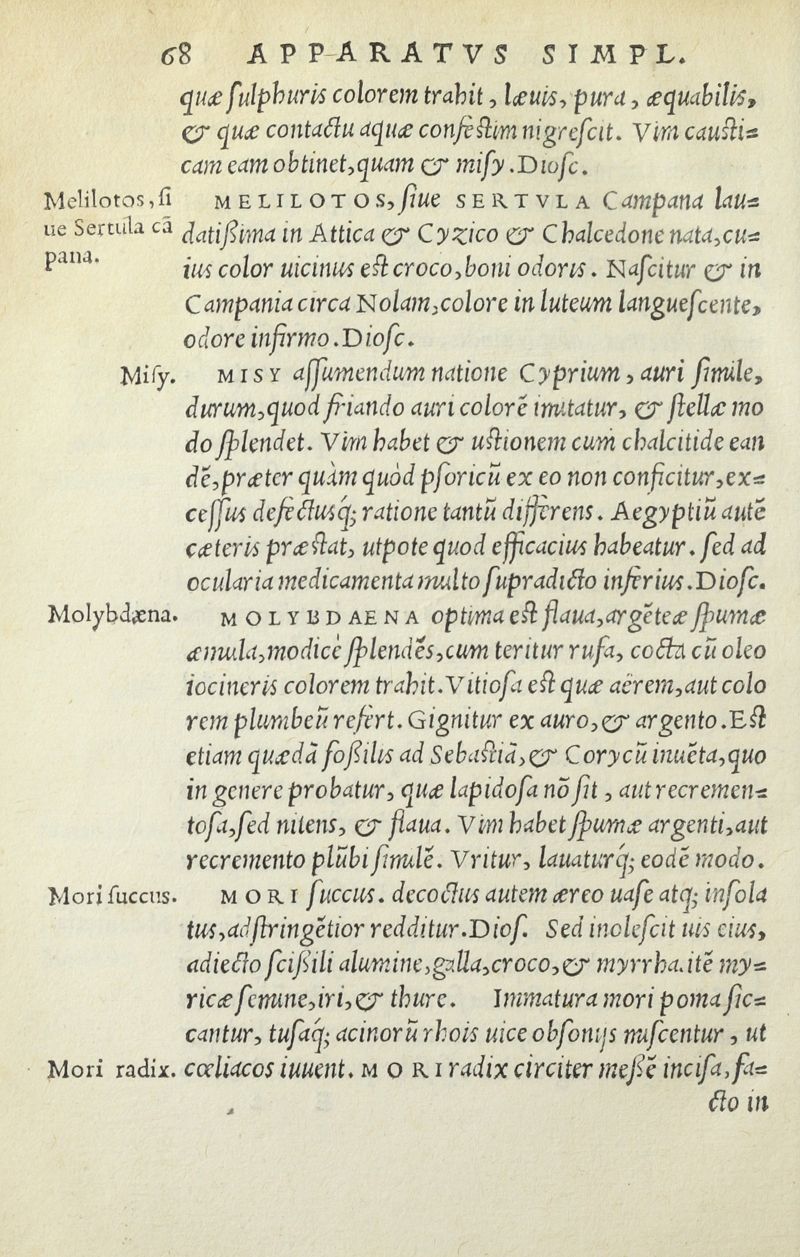 68 APPARATVS SIMPL.
quæ ſulphuris colorem trahit, læuis, pura, æquabilis,
& quæ contactu aquæ confeſtim nigreſcit. Vim cauſti=
cam eam obtinet, quam & miſy. Dioſc.
Melilotos, ſi
ue Sertula cā
pana.
MELILOTOS, ſiue SERTVLA Campana lau=
datiſsima in Attica & Cyzico & Chalcedone nata, cu=
ius color uicinus eſt croco, boni odoris. Naſcitur & in
Campania circa Nolam, colore in luteum langueſcente,
odore infirmo. Dioſc.
Miſy.
MISY aſſumendum natione Cyprium, auri ſimile,
durum, quod friando auri colorē imitatur, & ſtellæ mo
do ſplendet. Vim habet & uſtionem cum chalcitide ean
dē, præter quàm quòd pſoricū ex eo non conficitur, ex=
ceſſus defectusq; ratione tantū differens. Aegyptiū autē
cæteris præſtat, utpote quod efficacius habeatur. ſed ad
ocularia medicamenta multo ſupradicto inferius. Dioſc.
Molybdæna.
MOLYBDAENA optima eſt flaua, argēteæ ſpumæ
æmula, modicè ſplendēs, cum teritur rufa, cocta cū oleo
iocineris colorem trahit. Vitioſa eſt quæ aërem, aut colo
rem plumbeū refert. Gignitur ex auro, & argento. Eſt
etiam quædā foſsilis ad Sebaſtiā, & Corycū inuēta, quo
in genere probatur, quæ lapidoſa nō ſit, aut recremen=
toſa, ſed nitens, & flaua. Vim habet ſpumæ argenti, aut
recremento plūbi ſimilē. Vritur, lauaturq; eodē modo.
Mori ſuccus.
MORI ſuccus. decoctus autem æreo uaſe atq; inſola
tus, adſtringētior redditur. Dioſ. Sed inoleſcit uis eius,
adiecto ſciſsili alumine, galla, croco, & myrrha. itē my=
ricæ ſemine, iri, & thure. Immatura mori poma ſic=
cantur, tuſaq; acinorū rhois uice obſonijs miſcentur, ut
Mori radix.
cœliacos iuuent. MORI radix circiter meſsē inciſa, fa=
cto in